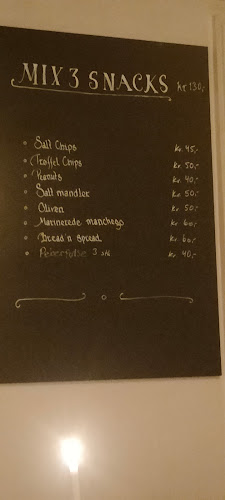 MIX 3 SNACKS kr 130,-
Salt Chips kr. 45,-
Trøffel Chips kr. 50,-
Peanuts kr. 40,-
Salt mandler kr. 50,-
Oliven kr. 50,-
Marinerede manchego kr. 60,-
Bread'n spread kr. 60,-
3 stk kr 40,-